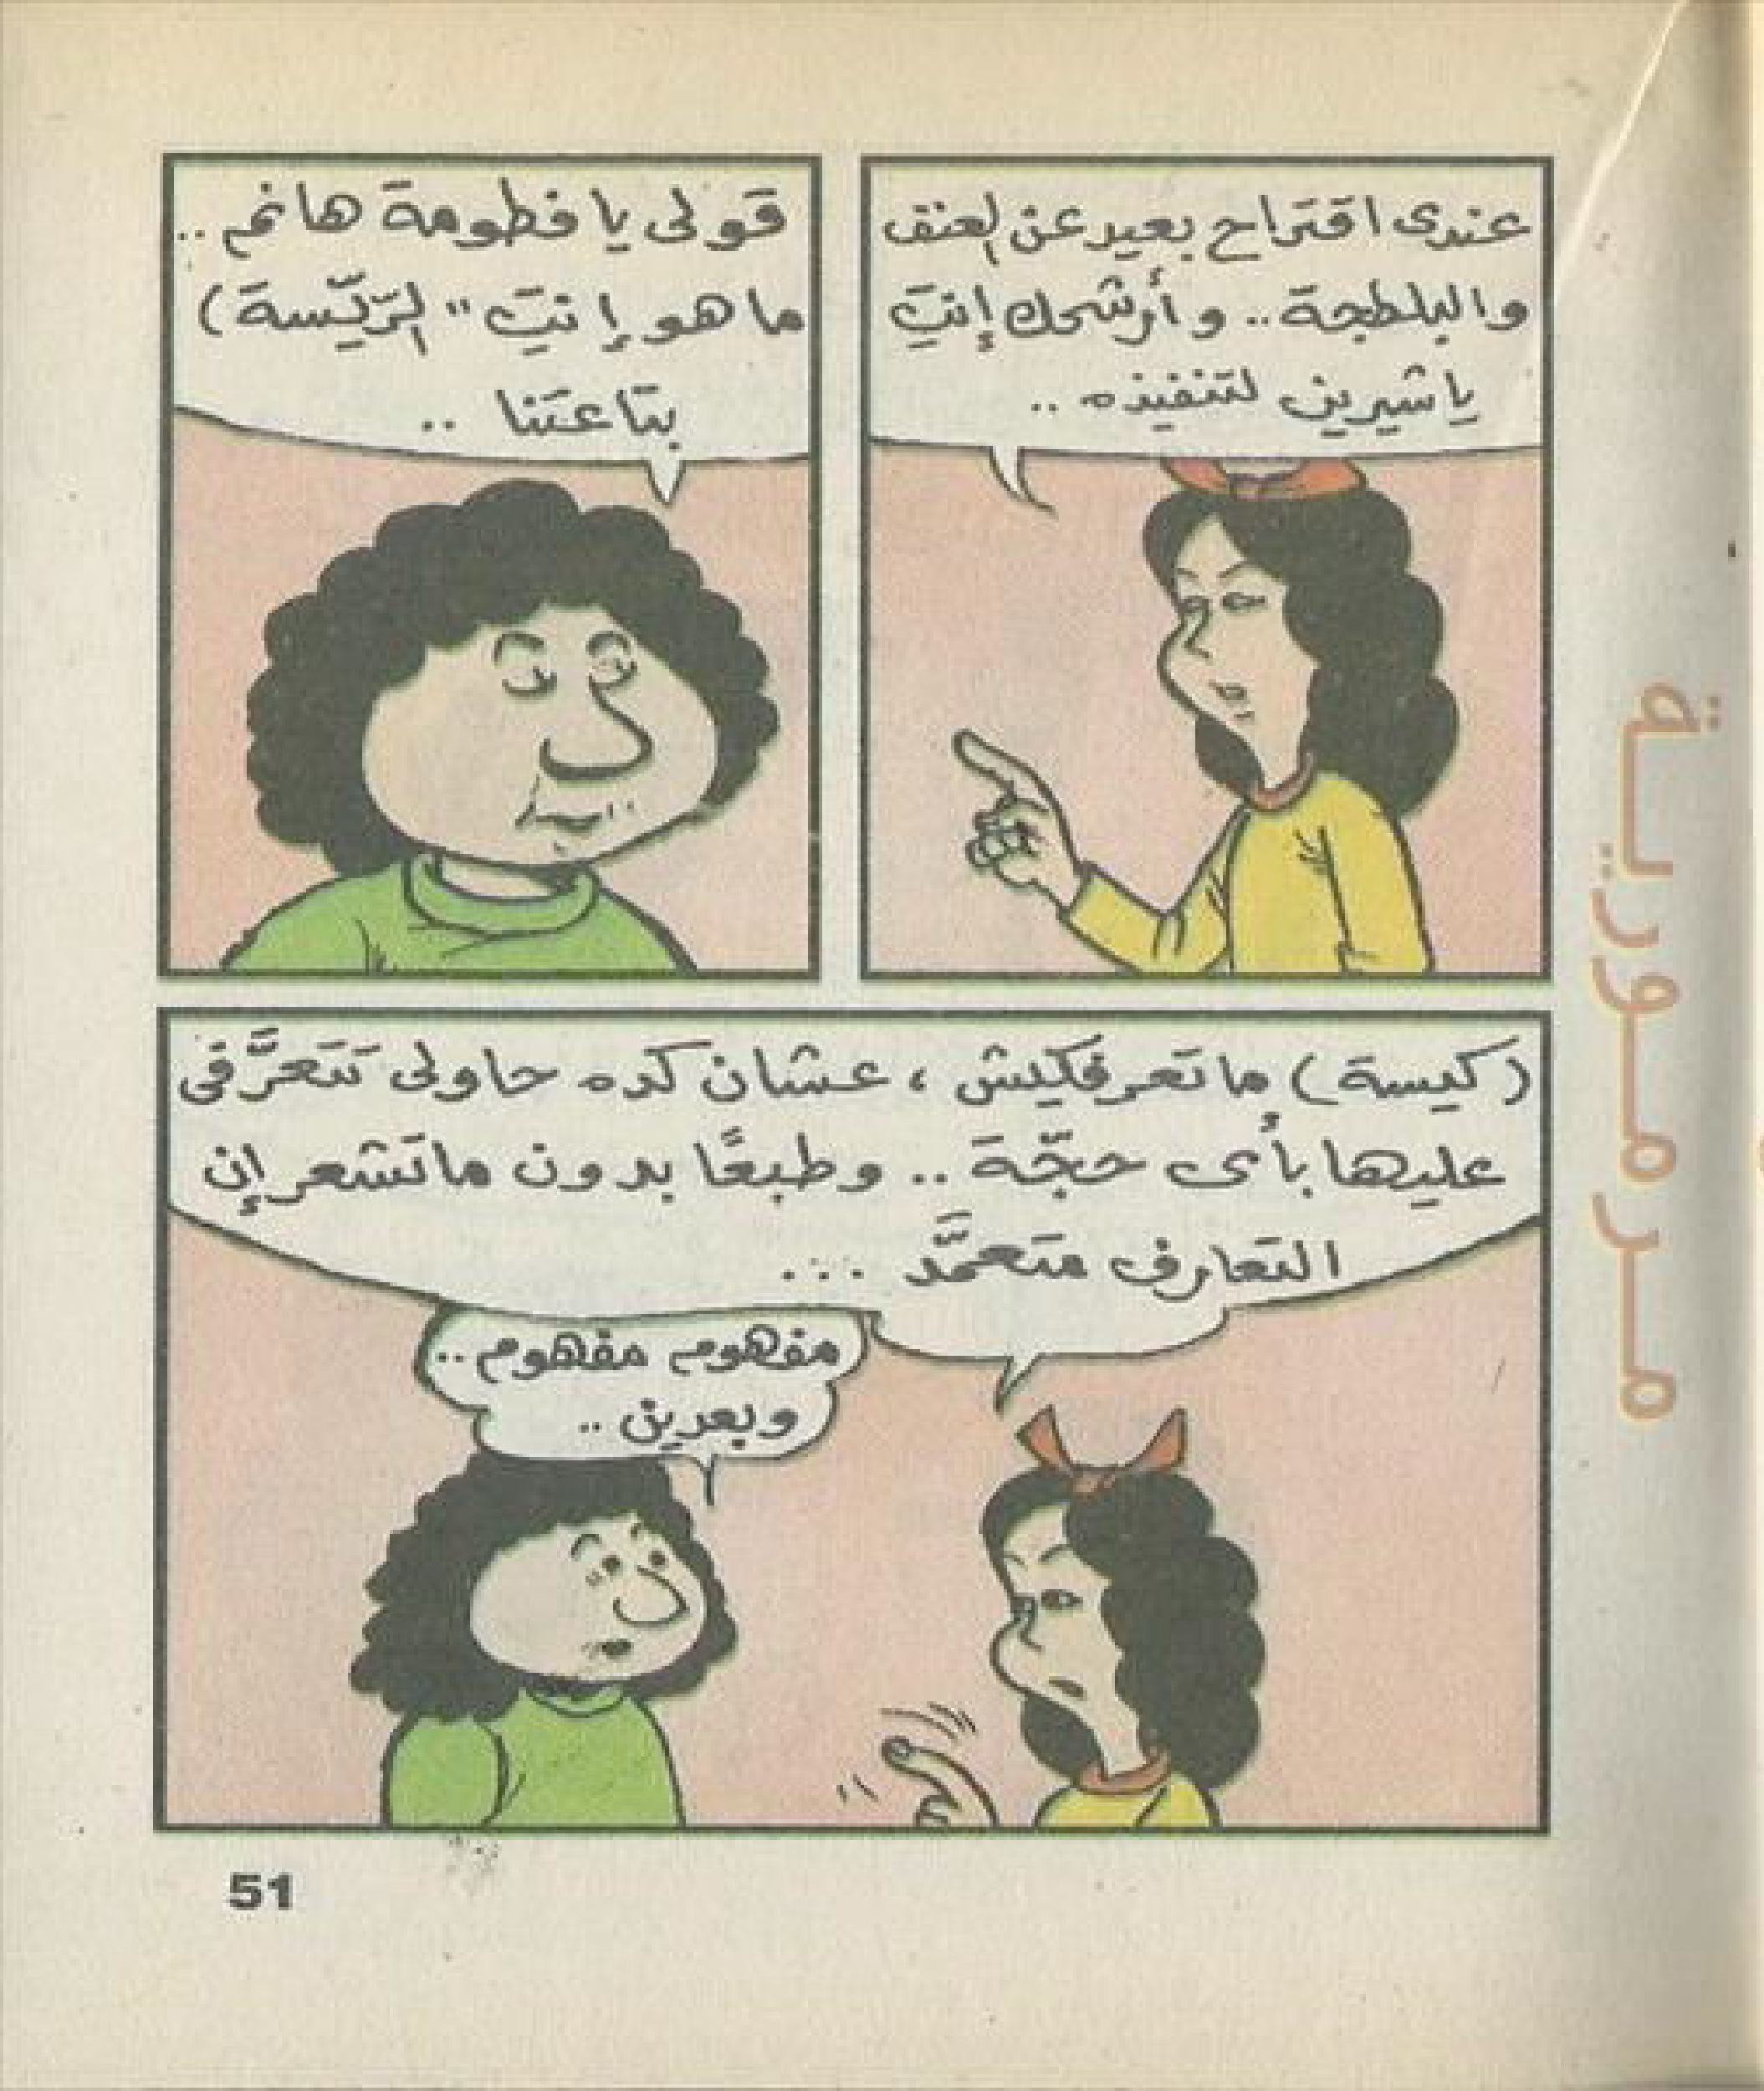 عندى اقتراح بعيد عن العنف
والبلطجة .. وأرشحك إنتِ
ياشيرين لتنفيذه ..
قولى يا فطومة هانم ..
ما هو إنتِ " الريّسة )
بتاعتنا ..
( كيسة ) ما تعرفكيش ، عشان كده حاولى تتعرَّفى
عليها بأى حجّة .. وطبعًا بدون ماتشعر إن
التعارف متعمَّد ...
مفهوم مفهوم ..
وبعدين ..
مرمورية
51